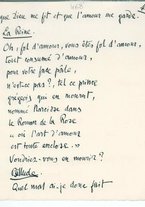 que Dieu me fit et que l'amour me garde.
La Reine.
Oh, fol d'amour, vous êtes fol d'amour,
tout consumé d'amour,
pour votre fade pâle,
n'est-ce pas ? tel ce prince
grégeois qui en mourut,
nommé Narcisse dans
le Roman de la Rose
"où l'art d'amour
est toute enclose."
Voudriez-vous en mourir ?
Quel mot ai-je donc fait